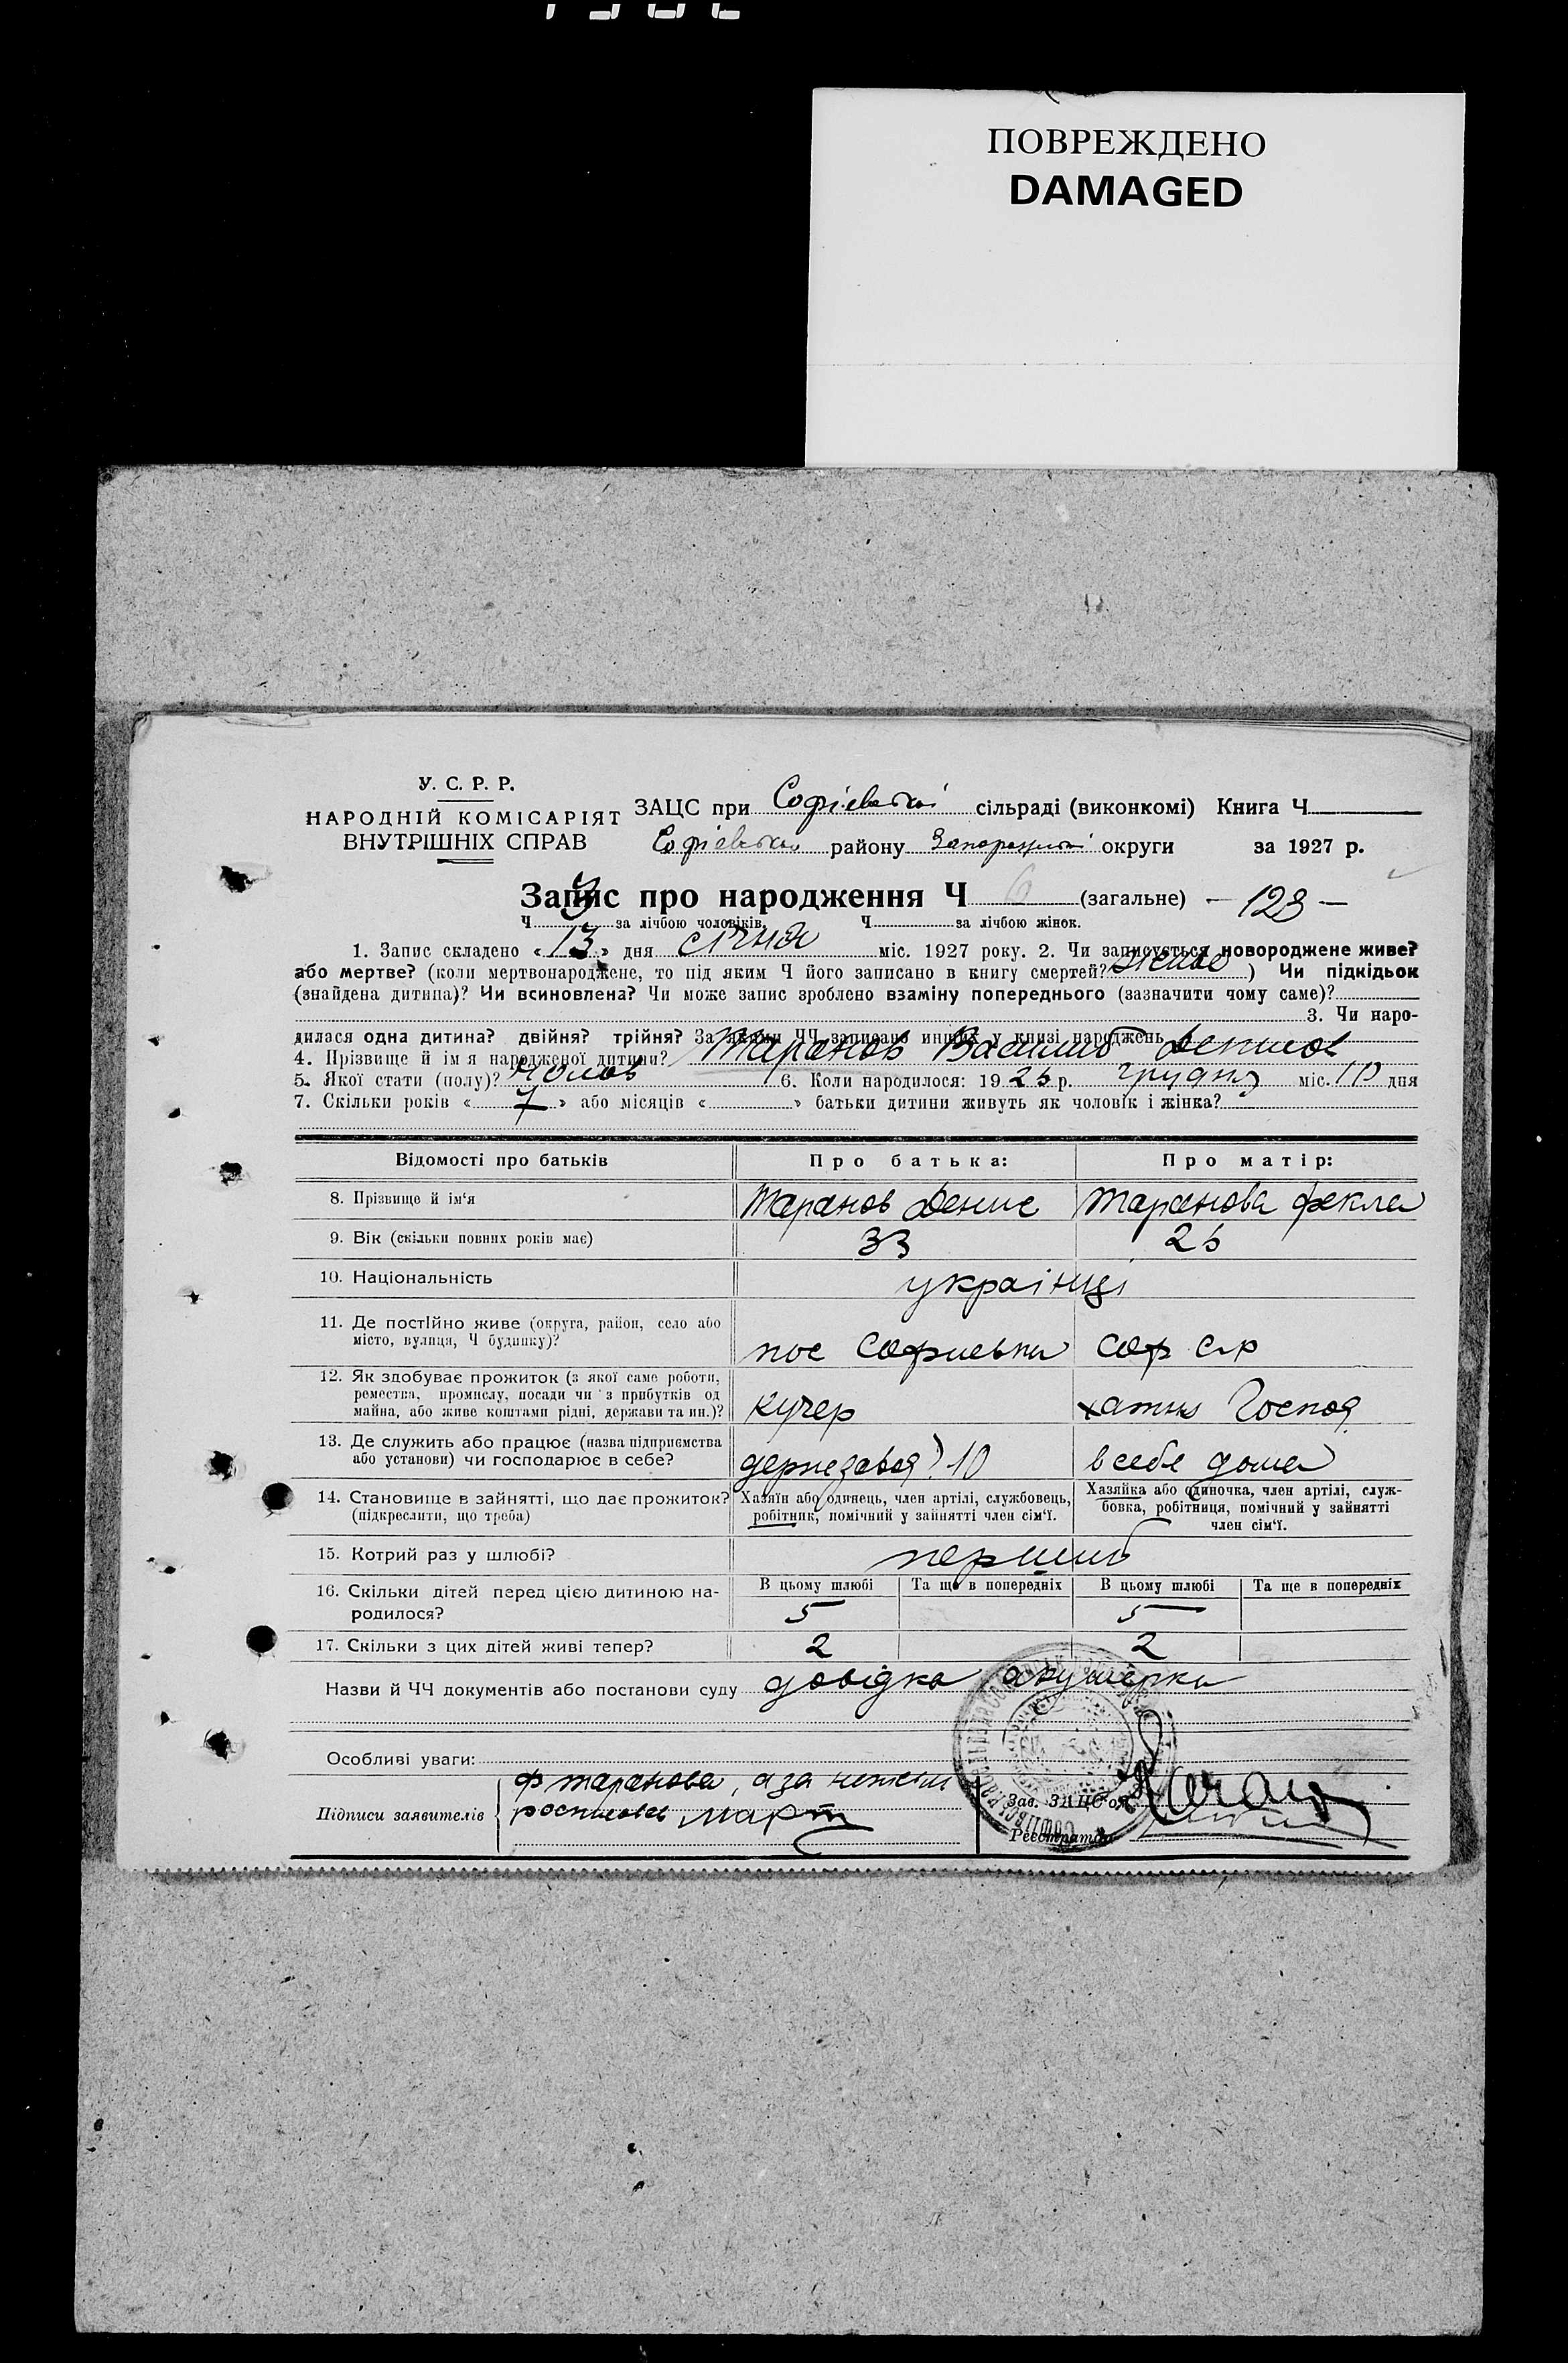 ПОВРЕЖДЕНО
DAMAGED
У. С. Р. Р.
НАРОДНІЙ КОМІСАРІЯТ
ВНУТРІШНІХ СПРАВ
ЗАЦС при Софіевській сільраді (виконкомі) Книга Ч
Софіевськ району Запорізької округи за 1927 р.
Запис про народження Ч 6 (загальне) – 128 –
Ч 3 за лічбою чоловіків. Ч за лічбою жінок.
1. Запис складено « 13 » дня січня міс. 1927 року. 2. Чи записується новороджене живе?
або мертве? (коли мертвонароджене, то під яким Ч його записано в книгу смертей? живе ) Чи підкідьок
(знайдена дитина)? Чи всиновлена? Чи може запис зроблено взаміну попереднього (зазначити чому саме)?
3. Чи наро-
дилася одна дитина? двійня? трійня? За якими ЧЧ записано инших у книзі народжень
4. Прізвище й ім я народженої дитини? Таранов Василь Денисов
5. Якої стати (полу)? чолов 6. Коли народилося: 19 26 р. грудня міс. 10 дня
7. Скільки років « 7 » або місяців « » батьки дитини живуть як чоловік і жінка?
Відомості про батьків Про батька: Про матір:
8. Прізвище й ім'я Таранов Денис Таранова Фекла
9. Вік (скільки повних років має) 33 26
10. Національність українці
11. Де постійно живе (округа, район, село або
місто, вулиця, Ч будинку)? пос Софиевка Соф с-р
12. Як здобуває прожиток (з якої саме роботи,
ремества, промислу, посади чи з прибутків од
майна, або живе коштами рідні, держави та ин.)? кучер хатня Господ
13. Де служить або працює (назва підприємства
або установи) чи господарює в себе? держзавод 10 в себе дома
14. Становище в зайнятті, що дає прожиток?
(підкреслити, що треба)
Хазяїн або одинець, член артілі, службовець,
робітник, помічний у зайнятті член сім'ї.
Хазяйка або одиночка, член артілі, служ-
бовка, робітниця, помічний у зайнятті
член сім'ї.
15. Котрий раз у шлюбі? перший
16. Скільки дітей перед цією дитиною на-
родилося?
В цьому шлюбі Та ще в попередніх В цьому шлюбі Та ще в попередніх
5 5
17. Скільки з цих дітей живі тепер? 2 2
Назви й ЧЧ документів або постанови суду довідка акушерки
Особливі уваги:
Підписи заявителів Ф Таранова, а за
Зав. ЗАЦС'ом
Реєстратор